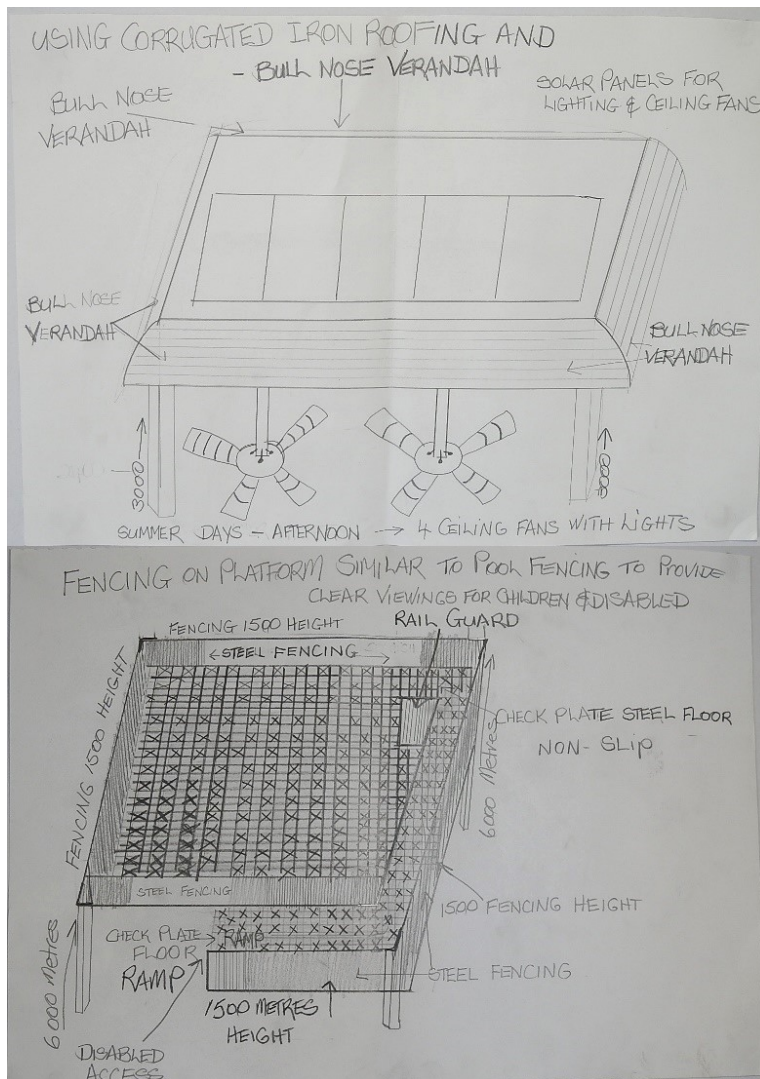 USING CORRUGATED IRON ROOFING AND
- BULL NOSE VERANDAH
SOLAR PANELS FOR
LIGHTING & CEILING FANS
BULL NOSE
VERANDAH
BULL NOSE
VERANDAH
BULL NOSE
VERANDAH
3000
3000
SUMMER DAYS - AFTERNOON → 4 CEILING FANS WITH LIGHTS
FENCING ON PLATFORM SIMILAR TO POOL FENCING TO PROVIDE
CLEAR VIEWINGS FOR CHILDREN & DISABLED
RAIL GUARD
FENCING 1500 HEIGHT
STEEL FENCING
FENCING 1500 HEIGHT
CHECK PLATE STEEL FLOOR
NON-SLIP
6000 METRES
STEEL FENCING
1500 FENCING HEIGHT
CHECK PLATE
FLOOR
RAMP
RAMP
STEEL FENCING
6000 METRES
1500 METRES
HEIGHT
DISABLED
ACCESS